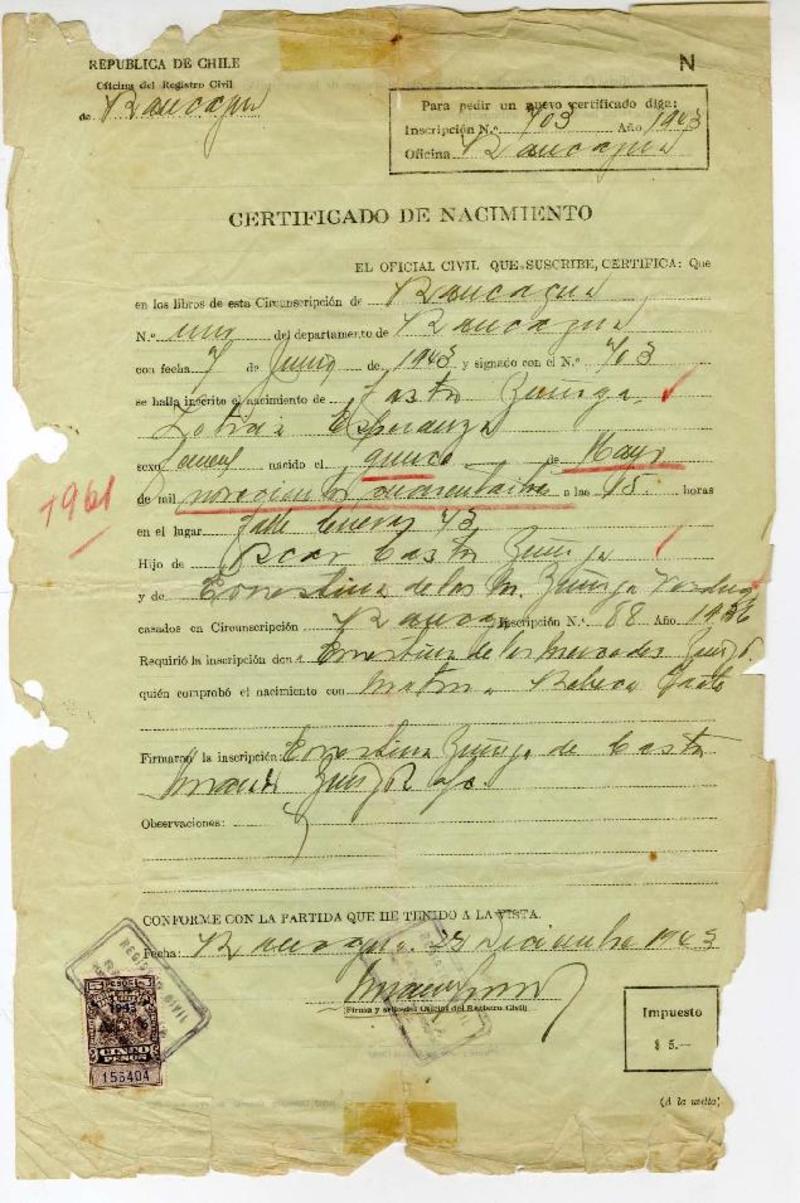 REPUBLICA DE CHILE
N
Oficina del Registro Civil
de Rancagua
Para pedir un nuevo certificado diga:
Inscripción N.o 703 Año 1943
Oficina Rancagua
CERTIFICADO DE NACIMIENTO
EL OFICIAL CIVIL QUE SUSCRIBE, CERTIFICA: Que
en los libros de esta Circunscripción de Rancagua
N.o uno del departamento de Rancagua
con fecha 7 de Junio de 1943 y signado con el N.o 703
se halla inscrito el nacimiento de Castro Zuñiga
Esperanza
sexo nacido el quince de Mayo
de mil novecientos cuarentaitres a las 15 horas
1961
en el lugar Calle Cuevas 73
Hijo de Oscar Castro Zuñiga
y de Ernestina de las M. Zuñiga
casados en Circunscripción Rancagua Inscripción N.o 88 Año
Requirió la inscripción don Ernestina de las Mercedes Zuñiga
quién comprobó el nacimiento con Matrona Rebeca
Firmaron la inscripción: Ernestina Zuñiga de Castro
Observaciones:
CONFORME CON LA PARTIDA QUE HE TENIDO A LA VISTA.
Fecha: Rancagua 23 Diciembre 1943
(Firma y sello del Oficial del Registro Civil)
REGISTRO CIVIL
1943
CINCO
PESOS
156404
Impuesto
$ 5.—
(A la vuelta)